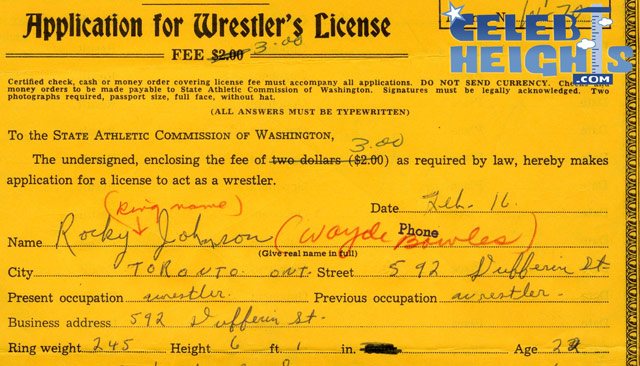 Application for Wrestler's License
CELEB
HEIGHTS
.COM
FEE $2.00 3.00
Certified check, cash or money order covering license fee must accompany all applications. DO NOT SEND CURRENCY. Checks and
money orders to be made payable to State Athletic Commission of Washington. Signatures must be legally acknowledged. Two
photographs required, passport size, full face, without hat.
(ALL ANSWERS MUST BE TYPEWRITTEN)
To the STATE ATHLETIC COMMISSION OF WASHINGTON,
3.00
The undersigned, enclosing the fee of two dollars ($2.00) as required by law, hereby makes
application for a license to act as a wrestler.
(Ring name)
Date Feb. 16.
Name Rocky Johnson (Wayde Bowles) Phone
(Give real name in full)
City TORONTO ONT. Street 592 Dufferin St.
Present occupation wrestler. Previous occupation wrestler.
Business address 592 Dufferin St.
Ring weight 245 Height 6 ft 1 in. Age 22